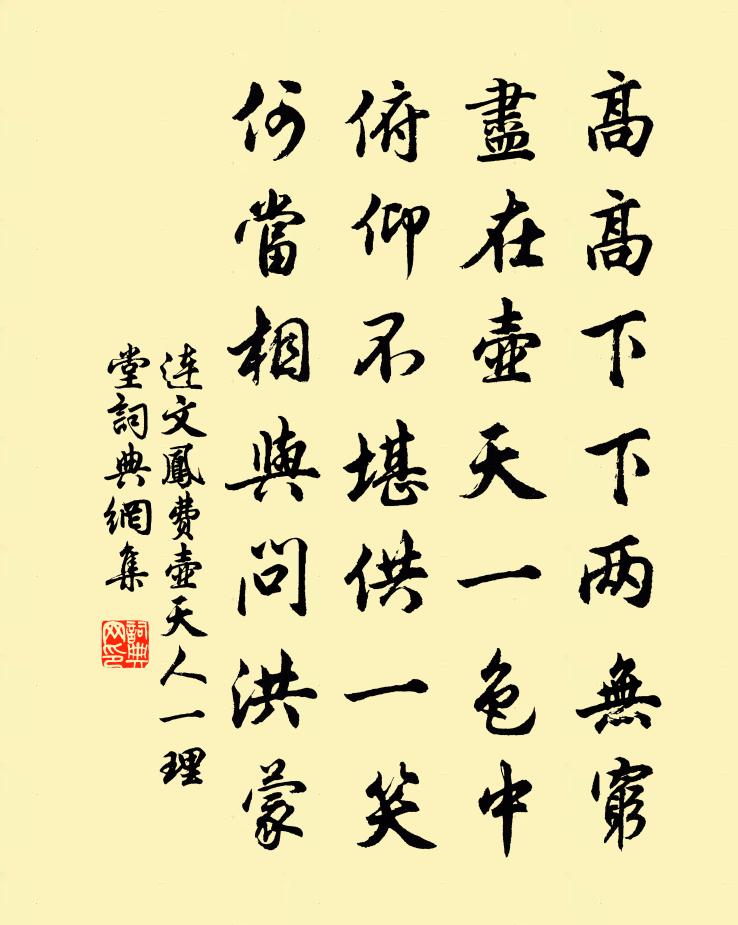 高高下下两無窮
盡在壺天一色中
俯仰不堪供一笑
何當相與問洪蒙
连文鳳費壺天人一理
堂詞典網集
詞典
网印